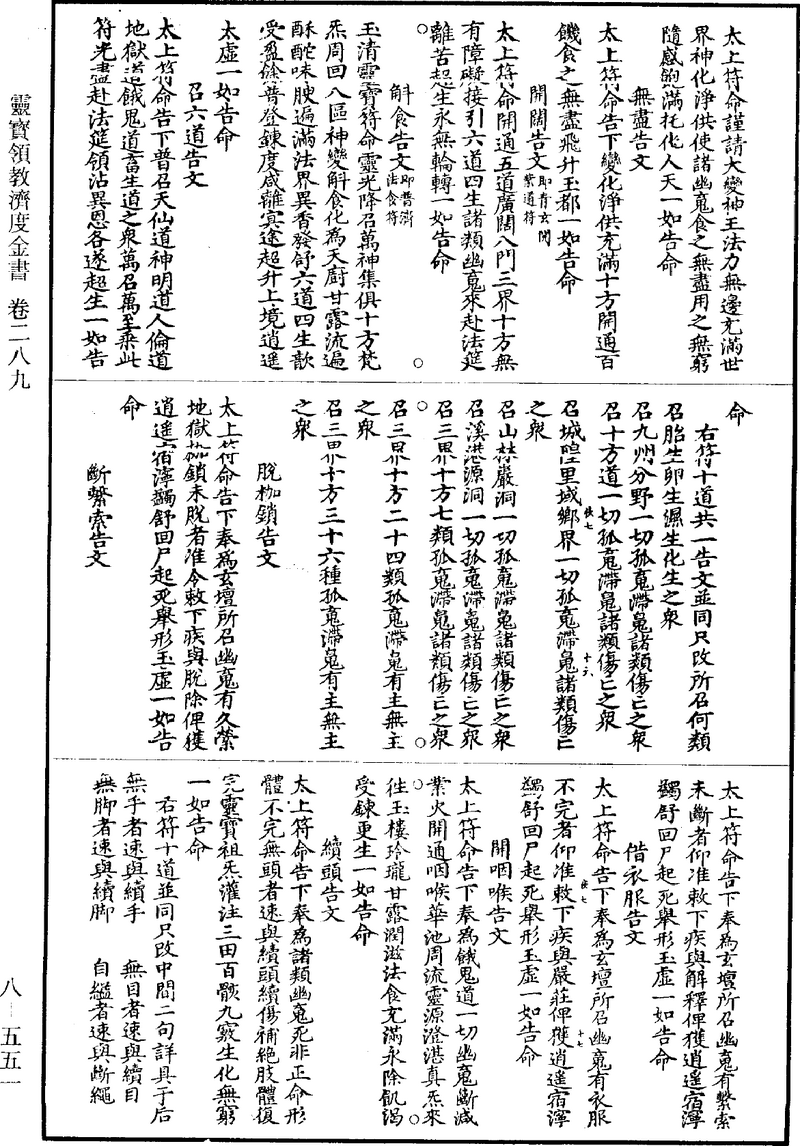 太上符命謹請大變神王法力無邊充滿世
界神化淨供使諸幽䰟食之無盡用之無窮
隨感飽滿托化人天一如告命
無盡告文
太上符命告下變化淨供充滿十方開通百
饑食之無盡飛升玉都一如告命
開闊告文即青玄開業道符
太上符命開通五道廣闊八門三界十方無
有障礙接引六道四生諸類幽䰟來赴法筵
離苦超生永無輪轉一如告命
斛食告文即普濟法食符
玉清靈寶符命靈光降召萬神集俱十方梵
炁周回八區神變斛食化為天廚甘露流遍
酥酡味腴遍滿法界異香發舒六道四生歆
受盈餘普登鍊度咸離冥途超升上境逍遥
太虛一如告命
召六道告文
太上符命告下普召天仙道神明道人倫道
地獄道餓鬼道畜生道之衆萬召萬至乘此
符光盡赴法筵領沾異恩各遂超生一如告
命
右符十道共一告文並同只改所召何類
召胎生卵生濕生化生之衆
召九州分野一切孤䰟滯鬼諸類傷亡之衆
召十方道一切孤䰟滯鬼諸類傷亡之衆
召城隍里域鄉界一切孤䰟滯鬼諸類傷亡
之衆
召山林巖洞一切孤䰟滯鬼諸類傷亡之衆
召溪港源洞一切孤䰟滯鬼諸類傷亡之衆
召三界十方七類孤䰟滯鬼諸類傷亡之衆
召三界十方二十四類孤䰟滯鬼有主無主
之衆
召三界十方三十六種孤䰟滯鬼有主無主
之衆
脫枷鎖告文
太上符命告下奉為玄壇所召幽䰟有久縈
地獄枷鎖未脫者准今敕下疾與脫除俾獲
逍遥宿濘蠲舒回尸起死舉形玉虛一如告
命
斷繫索告文
太上符命告下奉為玄壇所召幽䰟有繫索
未斷者仰准敕下疾與解釋俾獲逍遥宿濘
蠲舒回尸起死舉形玉虛一如告命
借衣服告文
太上符命告下奉為玄壇所召幽䰟有衣服
不完者仰准敕下疾與嚴莊俾獲逍遥宿濘
蠲舒回尸起死舉形玉虛一如告命
開咽喉告文
太上符命告下奉為餓鬼道一切幽䰟斷滅
業火開通咽喉華池周流靈源澄湛真炁來
往玉樓玲瓏甘露潤滋法食充滿永除飢渴
受鍊更生一如告命
續頭告文
太上符命告下奉為諸類幽䰟死非正命形
體不完無頭者速與續頭續傷補絕肢體復
完靈寶祖炁灌注三田百骸九竅生化無窮
一如告命
右符十道並同只改中間二句詳具于后
無手者速與續手　無目者速與續目
無脚者速與續脚　自縊者速與斷繩
靈寶領教濟度金書　卷二八九
八—五五一